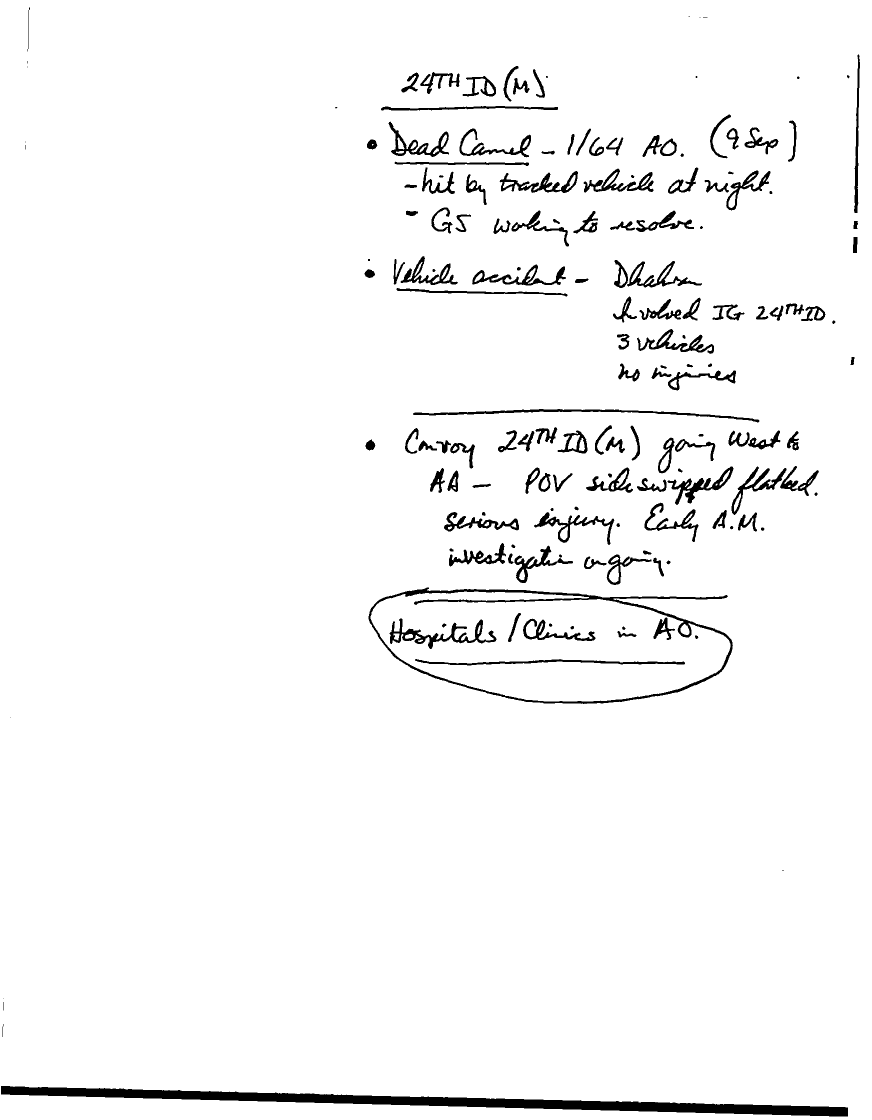 24TH ID (M)
• Dead Camel - 1/64 AO. (9 Sep)
- hit by tracked vehicle at night.
- G5 working to resolve.
• Vehicle accident - Dhahran
Involved IG 24TH ID.
3 vehicles
no injuries
• Convoy 24TH ID (M) going West to
AA - POV side swipped flatbed.
serious injury. Early A.M.
investigation ongoing.
Hospitals / Clinics in AO.